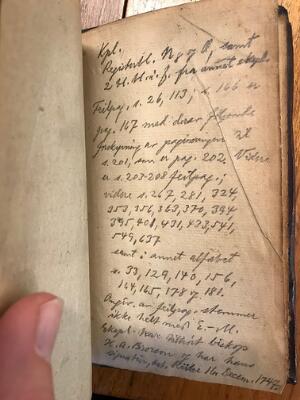 Kpl.
Registerbl. N g f O, samt
2 bl. fra annet ekpl.
Feilpag. s. 26, 113; s. 166 er
pag. 167 med derav følgende
forskyvning av pagineringen til
s. 201, som er pag. 202. Videre
er s. 203-208 feilpag.;
videre s. 267, 281, 324,
353, 356, 363, 370, 394
395, 401, 431, 433, 541,
549, 637
samt i annet alfabet
s. 33, 129, 140, 156,
164, 165, 178 og 181.
Angiv. av feilpag. stemmer
ikke helt med E.-M.
Ekspl. har tilhørt biskop
H. A. Brorson og har hans
signatur, dat. 16 Decem. 1747